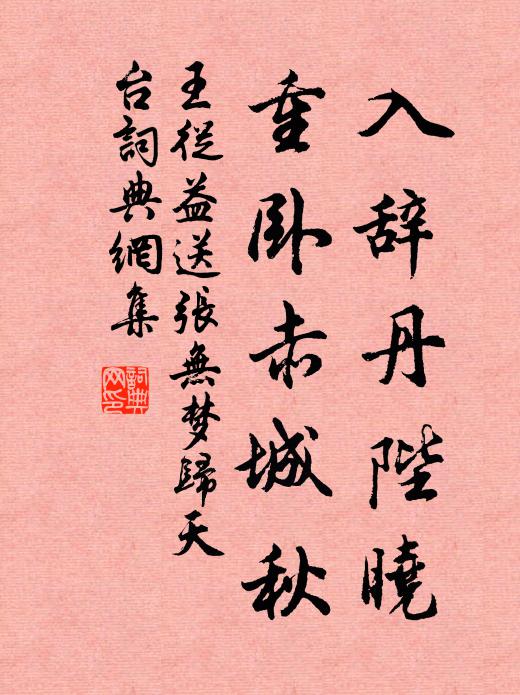 入辞丹陛曉
重卧赤城秋
王從益送張無梦歸天
台詞典網集
詞典網印